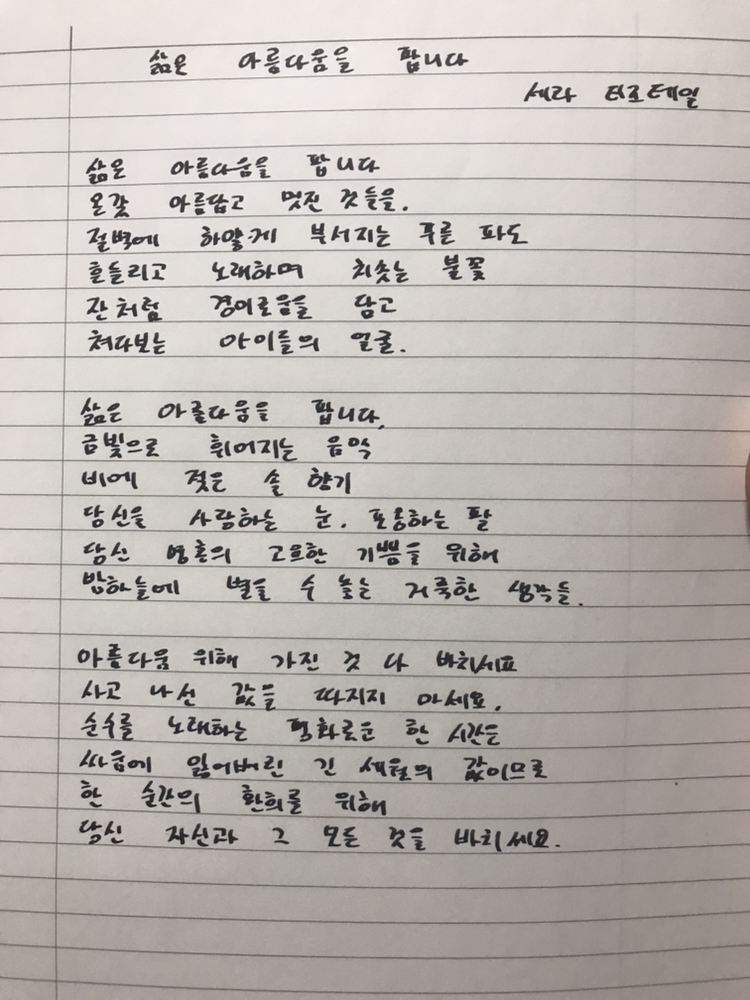 삶은 아름다움을 팝니다
세라 티즈데일
삶은 아름다움을 팝니다
온갖 아름답고 멋진 것들을.
절벽에 하얗게 부서지는 푸른 파도
흔들리고 노래하며 치솟는 불꽃
잔처럼 경이로움을 담고
쳐다보는 아이들의 얼굴.
삶은 아름다움을 팝니다.
금빛으로 휘어지는 음악
비에 젖은 솔 향기
당신을 사랑하는 눈, 포옹하는 팔
당신 영혼의 고요한 기쁨을 위해
밤하늘에 별을 수 놓는 거룩한 생각들.
아름다움 위해 가진 것 다 바치세요
사고 나선 값을 따지지 마세요.
순수를 노래하는 평화로운 한 시간은
싸움에 잃어버린 긴 세월의 값이므로
한 순간의 환희를 위해
당신 자신과 그 모든 것을 바치세요.